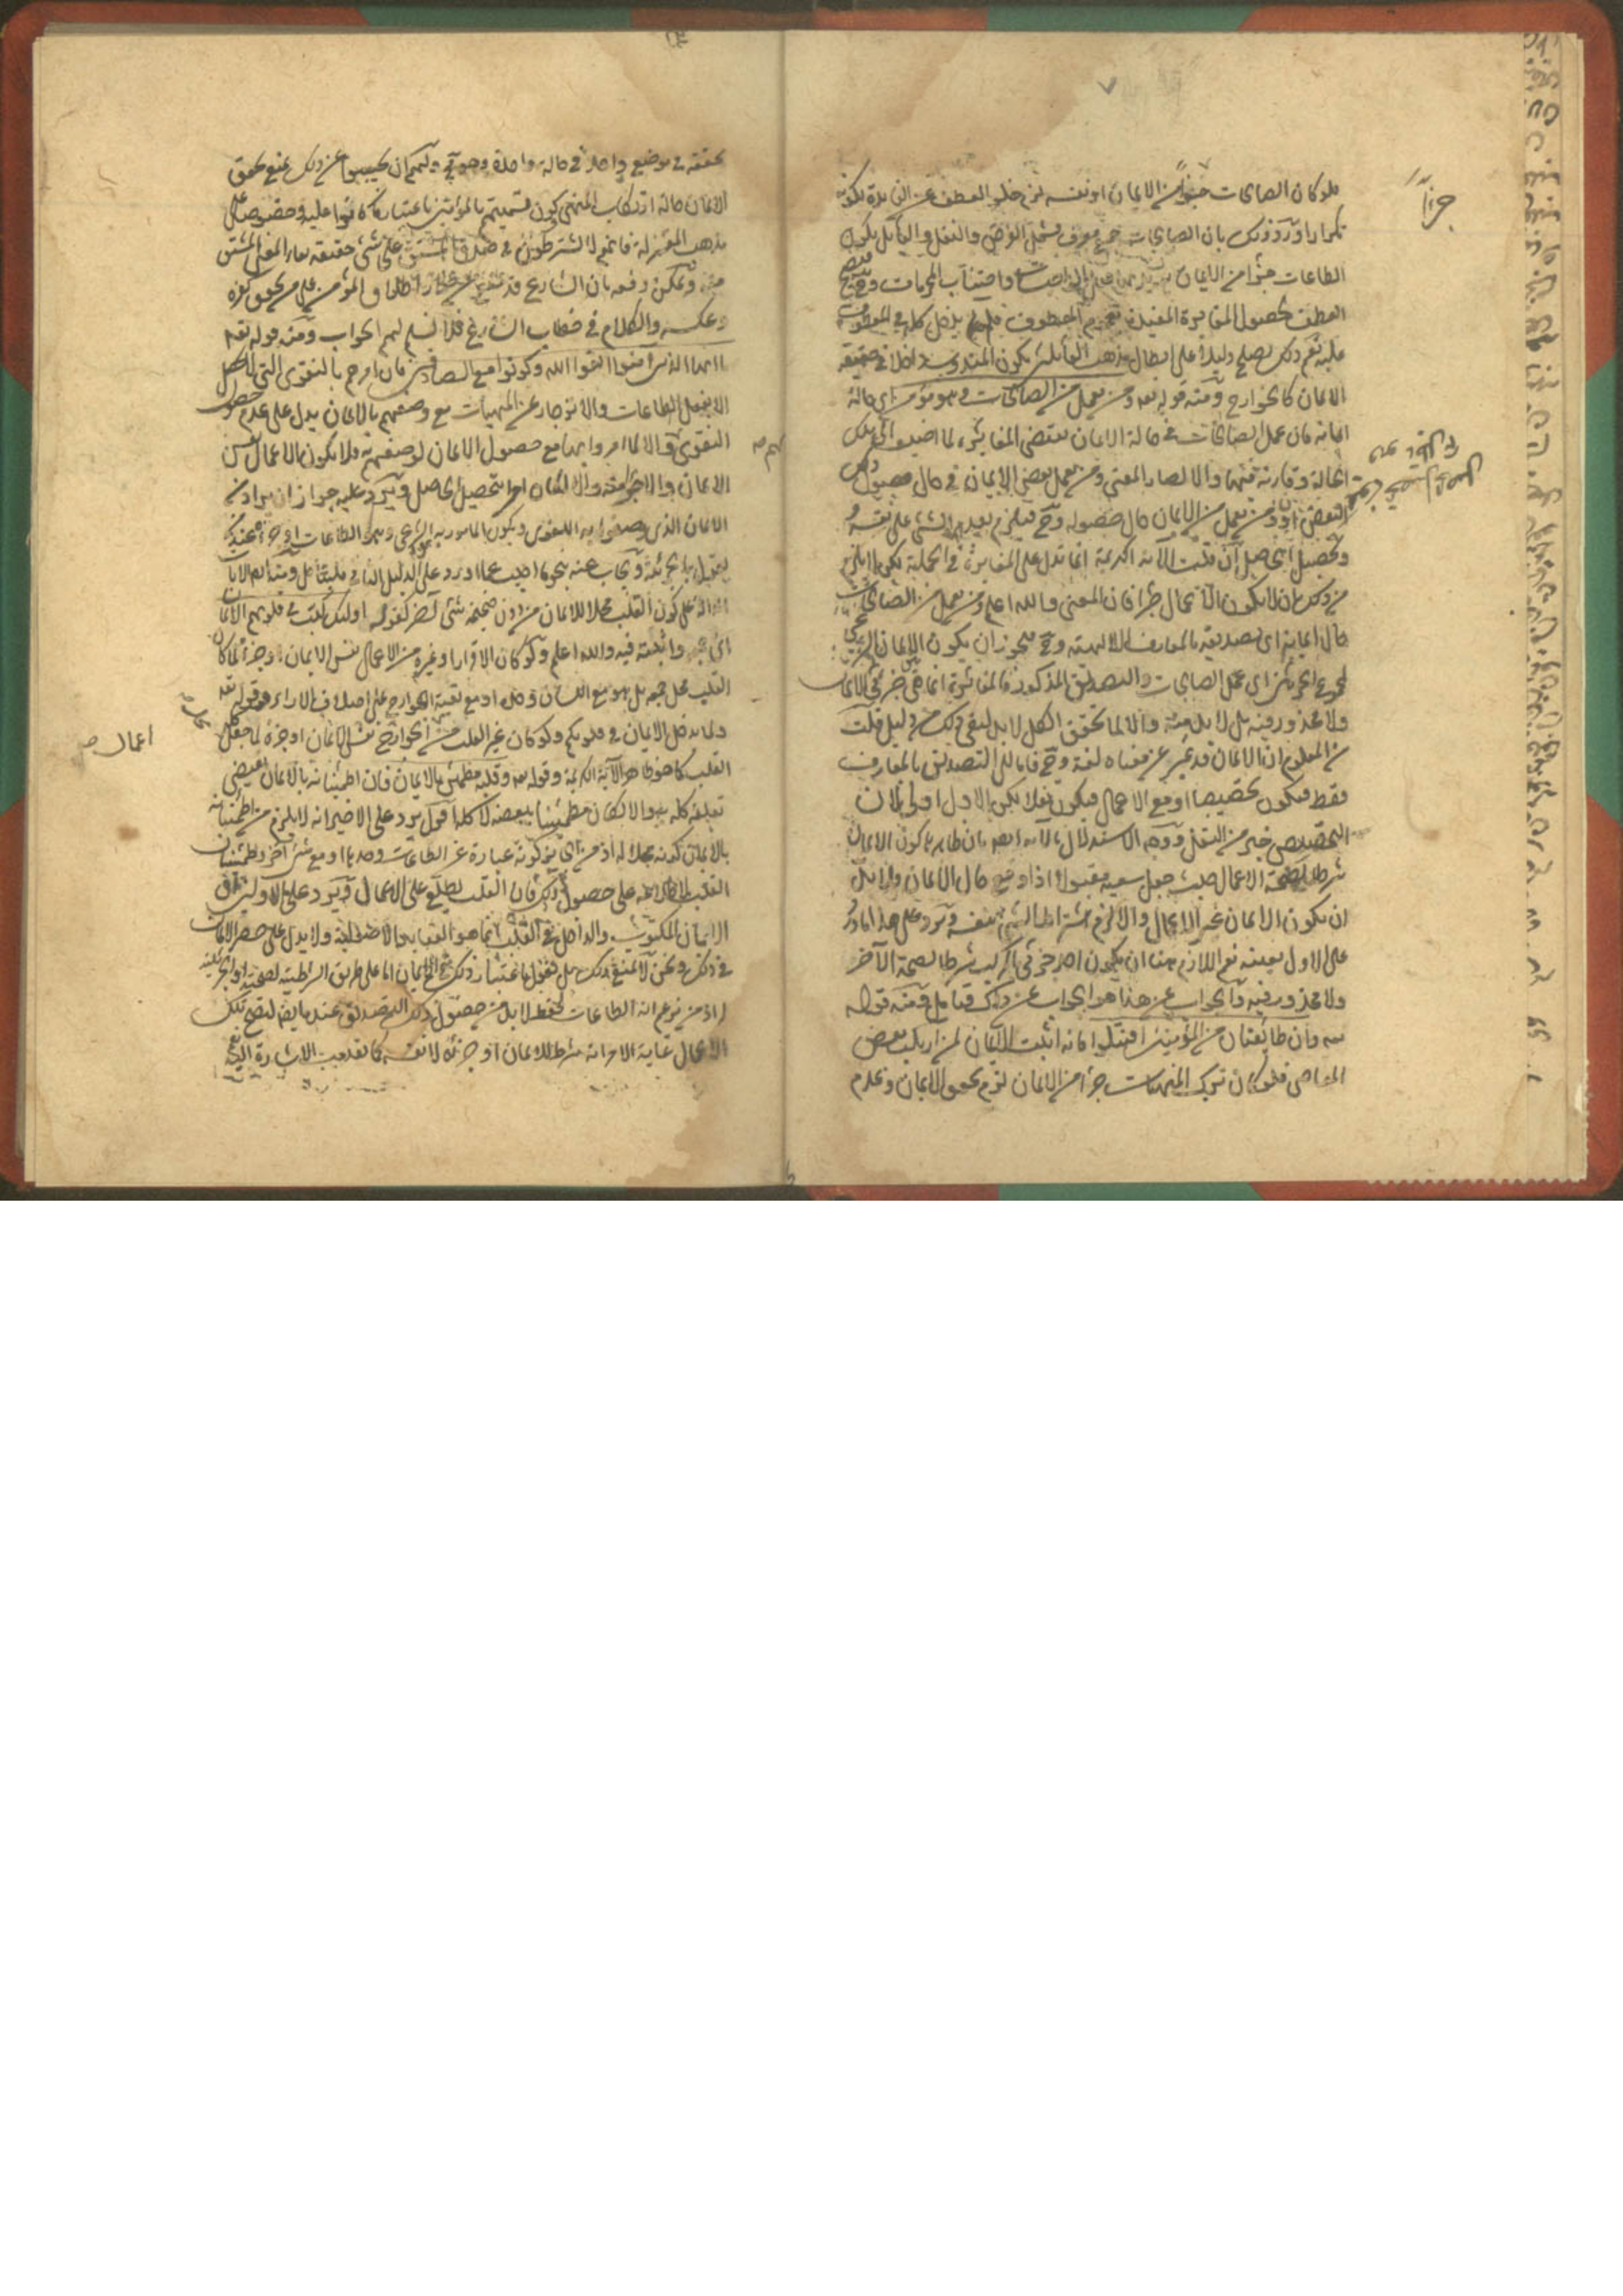 فلو كان الصالحات جزءا من الايمان او نفسه لزم خلو العطف عن الفائدة لكونه
تكرارا ورد ذلك بان الصالحات جمع معرف يشمل الفرض والنفل والقائل بكون
الطاعات جزءا من الايمان الواجبات واجتناب المحرمات وح فيصح
العطف لحصول المغايرة المفيدة المعطوف فلم يدخل كله في المعطوف
عليه نعم ذلك يصلح دليلا على ابطال مذهب القائلين بكون المندوب داخلا في حقيقة
الايمان كالخوارج ومنه قوله تعه ومن يعمل من الصالحات وهو مؤمن اي حالة
ايمانه فان عمل الصالحات في حالة الايمان يقتضي المغايرة لما اضيف الى تلك
الحالة وقارنه فيها والا لصار المعنى ومن يعمل بعض الايمان في حال حصول ذلك
البعض او ومن يعمل من الايمان حال حصوله وح فيلزم تقديم الشئ على نفسه
وتحصيل الحاصل ان قلت الآية الكريمة انما تدل على المغايرة في الجملة لكن لا يلزم
من ذلك ان لا تكون الاعمال جزءا فان المعنى والله اعلم ومن يعمل من الصالحات
حال ايمانه اي تصديقه بالمعارف الالهية وح فيجوز ان يكون الايمان الشرعي
لمجموع الجزئين اي عمل الصالحات والتصديق المذكور فالمغايرة انما هي جزئي الايمان
ولا محذور فيه بل لا بد منه والا لما تحقق الكل لا بد لنفي ذلك من دليل قلت
من المعلوم ان الايمان قد غير عن معناه لغة وح فاما الى التصديق بالمعارف
فقط فيكون تخصيصا او مع الاعمال فيكون نقلا لكن الاول اولى لان
التخصيص خير من النقل ووجه الاستدلال بالآية ايضا بان ظاهرها كون الايمان
شرطا لصحة الاعمال حيث جعل سعيه مقبولا اذا وقع حال الايمان فلا بد
ان يكون الايمان غير الاعمال والا لزم اشتراط الشئ بنفسه ويرد على هذا ما ورد
على الاول بعينه نعم اللازم هنا ان يكون احد جزئي المركب شرطا لصحة الآخر
ولا محذور فيه والجواب عن هذا هو الجواب عن ذلك فتأمل ومنه قوله
تعه وان طائفتان من المؤمنين اقتتلوا فانه اثبت الايمان لمن ارتكب بعض
المعاصي فلو كان ترك المنهيات جزءا من الايمان لزم تحقق الايمان وعدم
جزءا
تحققه في موضع واحد في حالة واحدة وهو مح ولهم ان يجيبوا عن ذلك بمنع تحقق
الايمان حالة ارتكاب المنهي وكون تسميتهم بالمؤمنين باعتبار ما كانوا عليه وخصوصا على
مذهب المعتزلة فانهم لا يشترطون في صدق المشتق على شئ حقيقة بقاء المعنى المشتق
منه ويمكن دفعه بان الشارع قد منع من جواز اطلاق المؤمن على من تحقق كفره
وعكسه والكلام في خطاب الشارع فلا نسلم لهم الجواب ومنه قوله تعه
يا ايها الذين آمنوا اتقوا الله وكونوا مع الصادقين فان امرهم بالتقوى التي لا تحصل
الا بفعل الطاعات والانزجار عن المنهيات مع وصفهم بالايمان يدل على عدم حصول
التقوى لهم والا لما امروا بها مع حصول الايمان لوصفهم به فلا يكون الاعمال نفس
الايمان ولا جزؤه والا لكان امرا بتحصيل الحاصل ويرد عليه جواز ان يراد من
الايمان الذي وصفوا به اللغوي ويكون المأمور به الشرعي وهو الطاعات او جزؤه عند من
يقول بالجزئية ويجاب عنه بنحو ما اجيب عما ورد على الدليل الثاني فليتأمل ومنه الآيات
الدالة على كون القلب محلا للايمان من دون ضميمة شئ آخر كقوله اولئك كتب في قلوبهم الايمان
اي جمعه واثبته فيه والله اعلم ولو كان الاقرار او غيره من الاعمال نفس الايمان او جزءه لما كان
القلب محل جميعه بل هو مع اللسان وحده او مع بقية الجوارح على اختلاف الآراء وقوله تعه
ولما يدخل الايمان في قلوبكم ولو كان غير القلب من اعمال الجوارح نفس الايمان او جزءه لما جعل كله محل
القلب كما هو ظاهر الآية الكريمة وقوله تعه وقلبه مطمئن بالايمان فان اطمئنانه بالايمان يقتضي
تعلقه كله به والا لكان مطمئنا ببعضه لا كله اقول يرد على الاخير انه لا يلزم من اطمئنانه
بالايمان كونه محلا له اذ من الجايز كونه عبارة عن الطاعات وحدها او مع شئ آخر واطمئنان
القلب لاطلاعه على حصول ذلك فان القلب يطلع على الاعمال ويرد على الاولين ان
الايمان المكتوب والداخل في القلب انما هو العقايد الاصولية ولا يدل على حصر الايمان
في ذلك ونحن لا نمنع ذلك بل نقول باعتبار ذلك في الايمان اما على طريق الشرطية لصحته او الجزئية له
اذ من يزعم انه الطاعات فقط لا بد من حصول ذلك التصديق عنده ايضا لتصح تلك
الاعمال غاية الامر انه شرط للايمان او جزئه لا نفسه كما تقدمت الاشارة اليه
اعمال صح